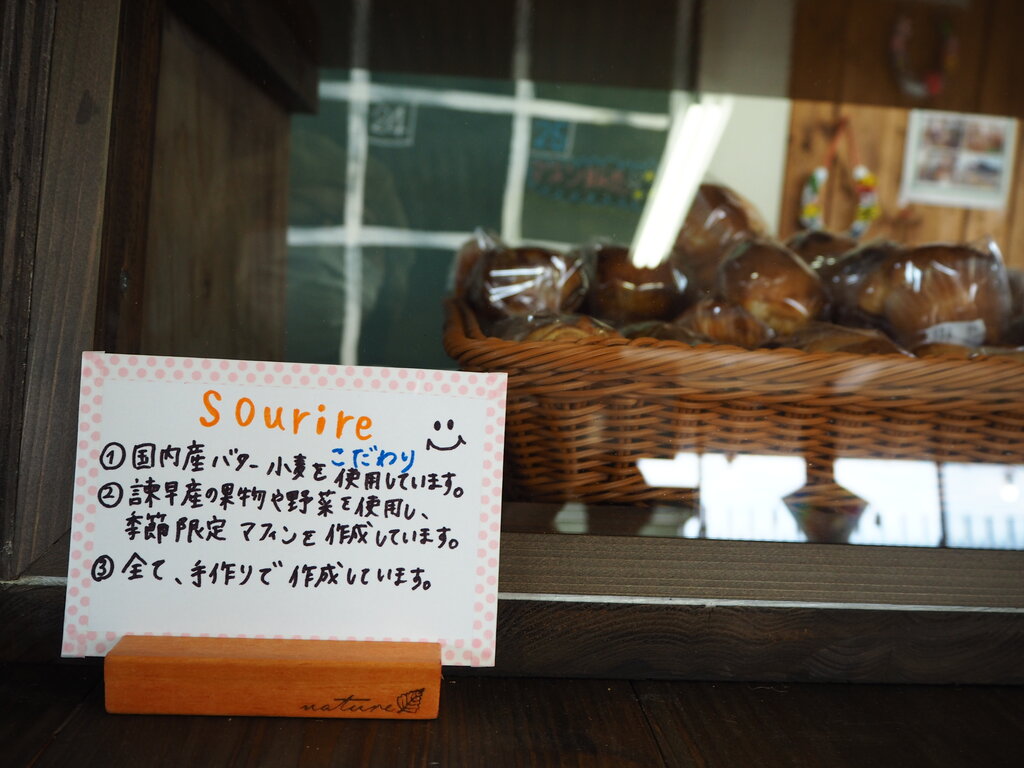 sourire
①国内産バター小麦をこだわり
使用しています。
②諫早産の果物や野菜を使用し、
季節限定マフィンを作成しています。
③全て、手作りで作成しています。
nature
24